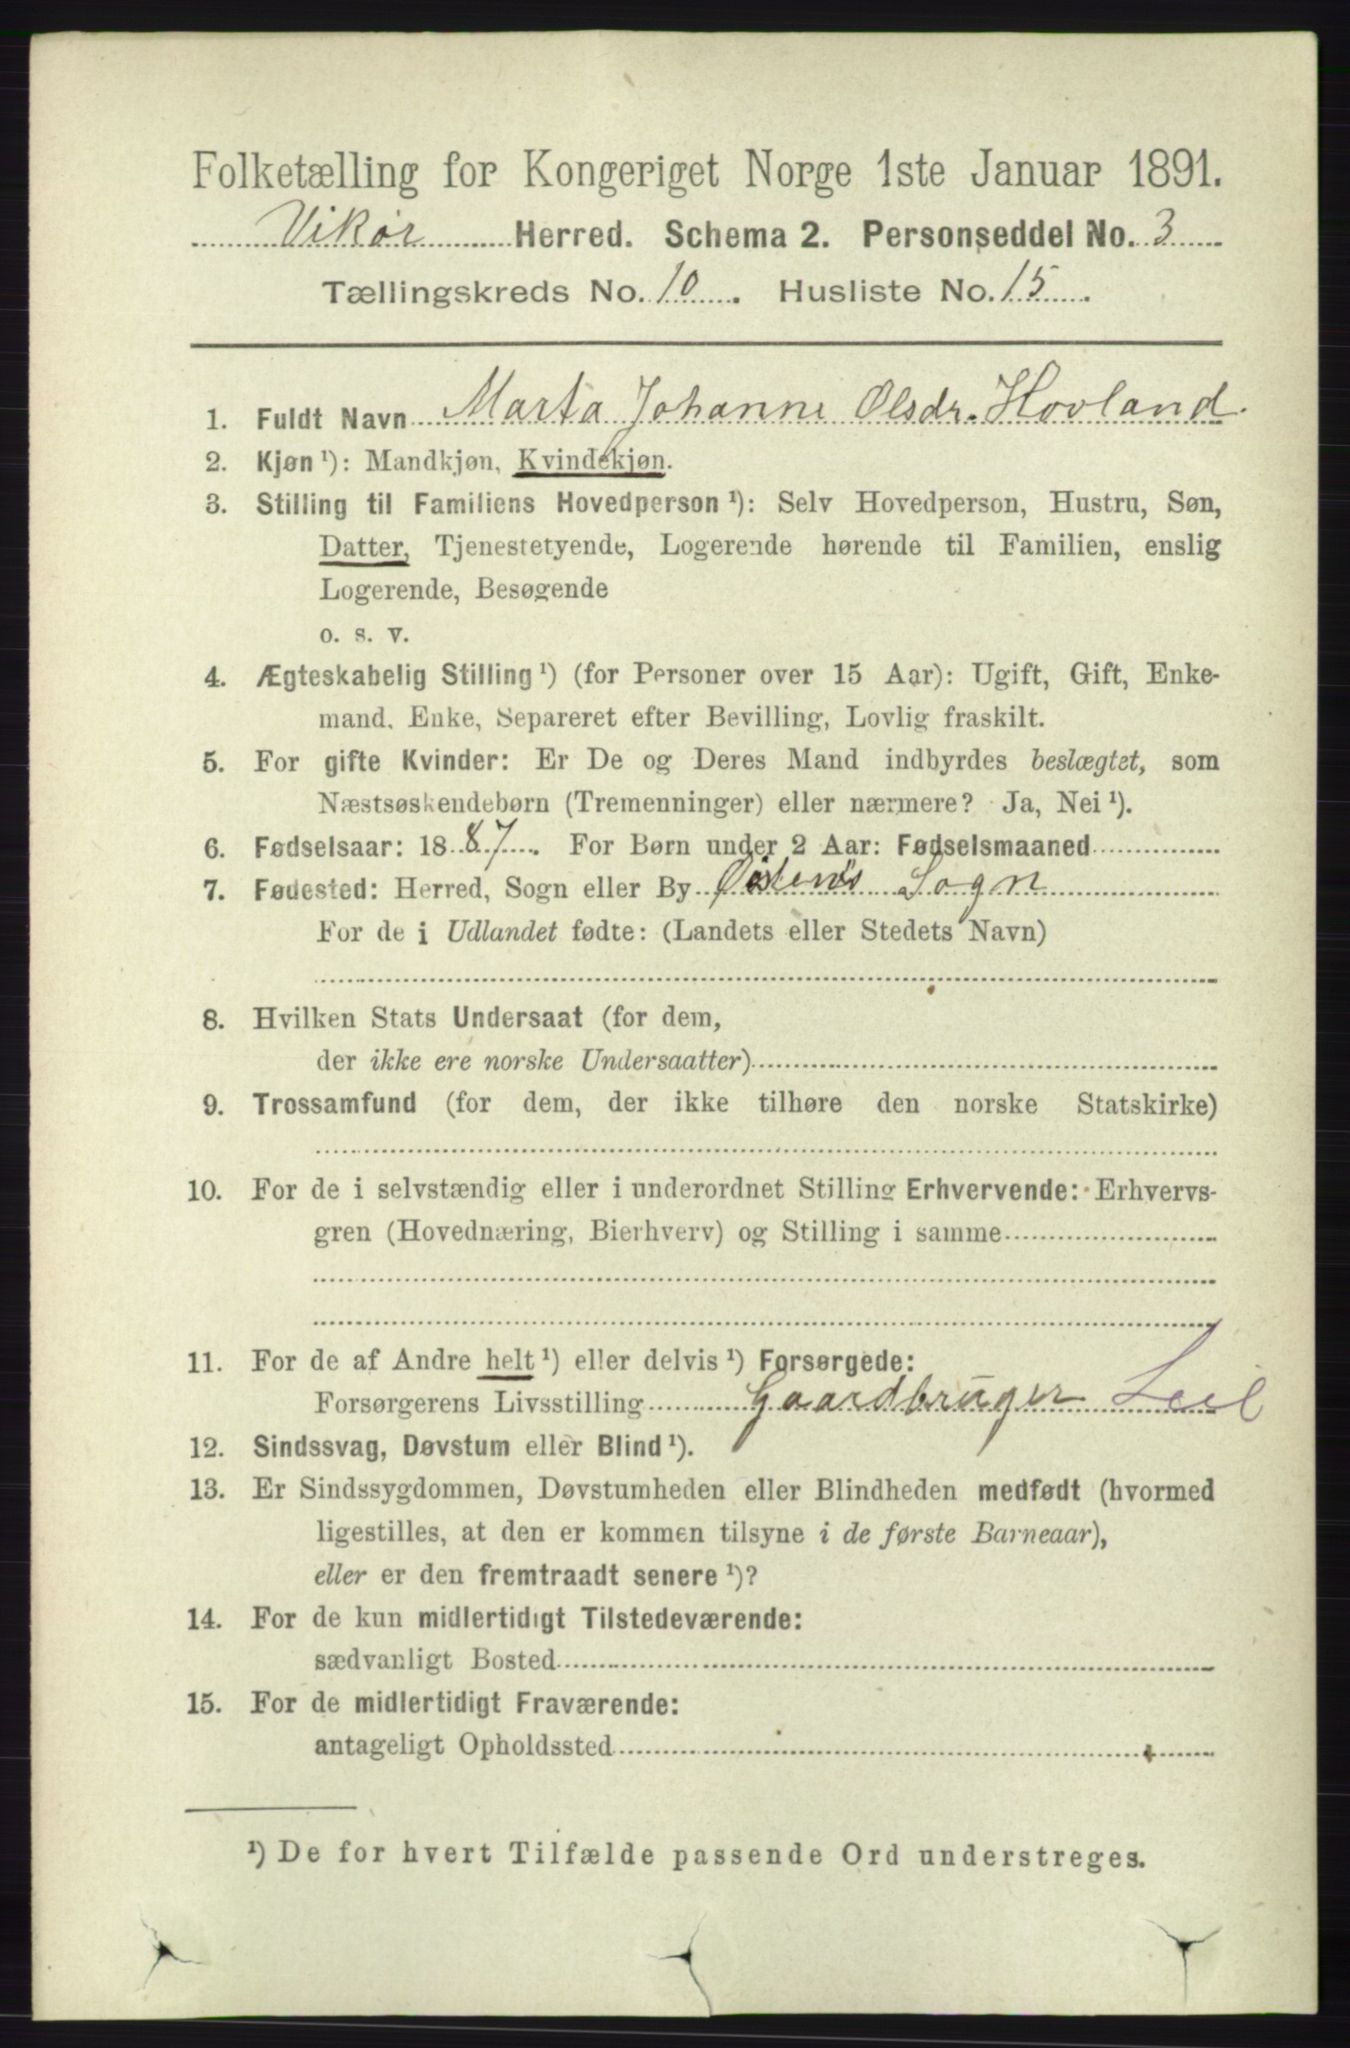 Folketælling for Kongeriget Norge 1ste Januar 1891.
Vikør Herred. Schema 2. Personseddel No. 3
Tællingskreds No. 10. Husliste No. 15.
1. Fuldt Navn Marta Johanne Olsdr. Hovland
2. Kjøn ¹): Mandkjøn, Kvindekjøn.
3. Stilling til Familiens Hovedperson ¹): Selv Hovedperson, Hustru, Søn,
Datter, Tjenestetyende, Logerende hørende til Familien, enslig
Logerende, Besøgende
o. s. v.
4. Ægteskabelig Stilling ¹) (for Personer over 15 Aar): Ugift, Gift, Enke-
mand, Enke, Separeret efter Bevilling, Lovlig fraskilt.
5. For gifte Kvinder: Er De og Deres Mand indbyrdes beslægtet, som
Næstsøskendebørn (Tremenninger) eller nærmere? Ja, Nei ¹).
6. Fødselsaar: 1887. For Børn under 2 Aar: Fødselsmaaned
7. Fødested: Herred, Sogn eller By Østensø Sogn
For de i Udlandet fødte: (Landets eller Stedets Navn)
8. Hvilken Stats Undersaat (for dem,
der ikke ere norske Undersaatter)
9. Trossamfund (for dem, der ikke tilhøre den norske Statskirke)
10. For de i selvstændig eller i underordnet Stilling Erhvervende: Erhvervs-
gren (Hovednæring, Bierhverv) og Stilling i samme
11. For de af Andre helt ¹) eller delvis ¹) Forsørgede:
Forsørgerens Livsstilling Gaardbruger Leil
12. Sindssvag, Døvstum eller Blind ¹).
13. Er Sindssygdommen, Døvstumheden eller Blindheden medfødt (hvormed
ligestilles, at den er kommen tilsyne i de første Barneaar),
eller er den fremtraadt senere ¹)?
14. For de kun midlertidigt Tilstedeværende:
sædvanligt Bosted
15. For de midlertidigt Fraværende:
antageligt Opholdssted
¹) De for hvert Tilfælde passende Ord understreges.